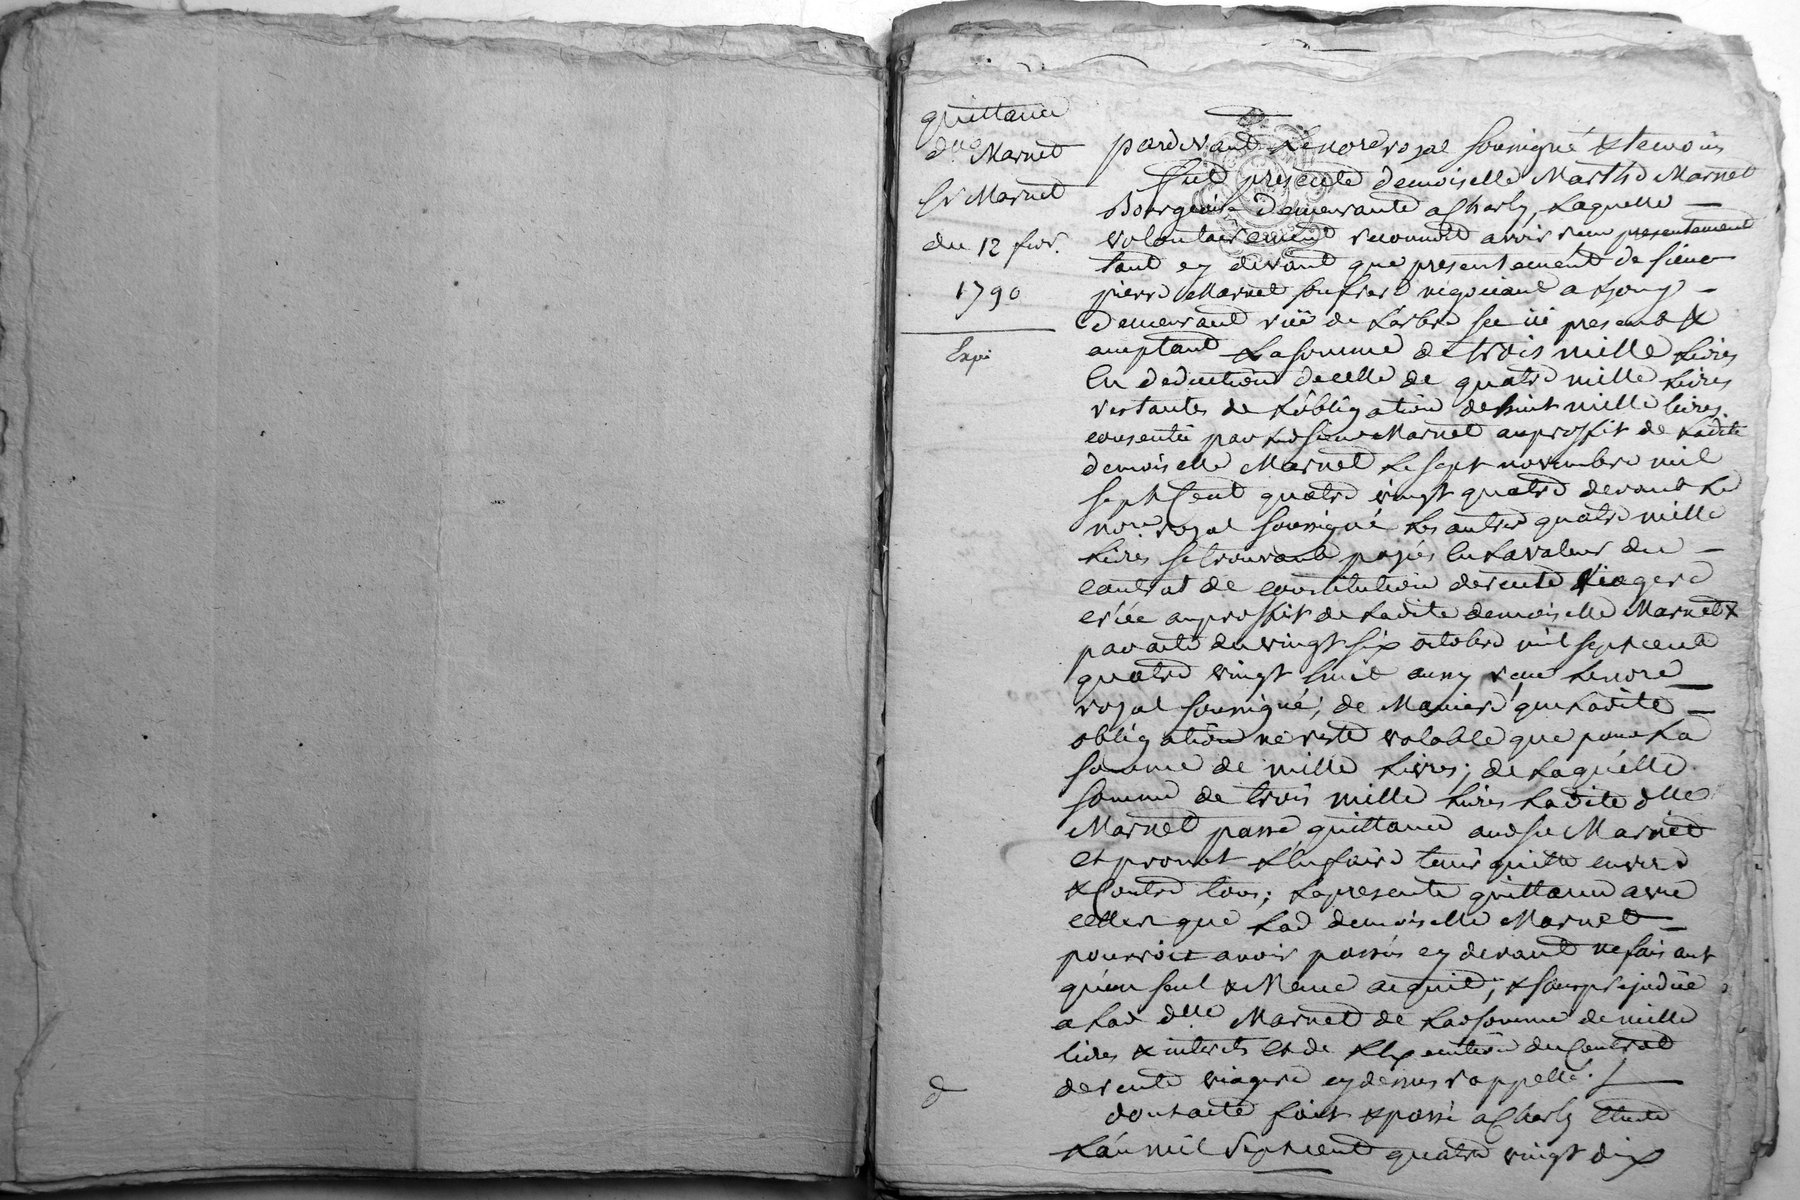 quittance
dlle Marnet
Sr Marnet
du 12 fevr.
1790
Expé
pardevant Le no.re royal soussigné & temoins
fut presente demoiselle Marthe Marnet
Bourgeoise demeurante a Charly, Laquelle
volontairement reconnoit avoir reçu presentement
tant cy devant que presentement de sieur
pierre Marnet son frere négociant a Lyon
demeurant ruë de Larbre sec ici present &
acceptant La somme de trois mille Livres
En deduction de celle de quatre mille Livres
restantes de L'obligation de huit mille livres
consentie par led sieur Marnet au proffit de Ladite
demoiselle Marnet Le sept novembre mil
sept Cent quatre vingt quatre devant Le
no.re royal soussigné Les autres quatre mille
Livres se trouvant payés En La valeur du
contrat de constitution de rente viagere
créée au proffit de Ladite demoiselle Marnet
par acte du vingt six octobre mil sept cent
quatre vingt huit aussy reçu Le no.re
royal soussigné; de Maniere que Ladite
obligation ne reste valable que pour La
somme de mille Livres; de Laquelle
somme de trois mille Livres Ladite dlle
Marnet passe quittance aud sr Marnet
et promet L'En faire tenir quitte envers
& Contre tous; La presente quittance avec
celles que Lad demoiselle Marnet
pourroit avoir passés cy devant ne faisant
qu'un seul & Meme acquit; & sans prejudice
a Lad dlle Marnet de Lad somme de mille
livres & interets et de L'Execution du Contrat
de rente viagere cy dessus rappellé.
dont acte fait & passé a Charly Etude
L'an mil sept cent quatre vingt dix